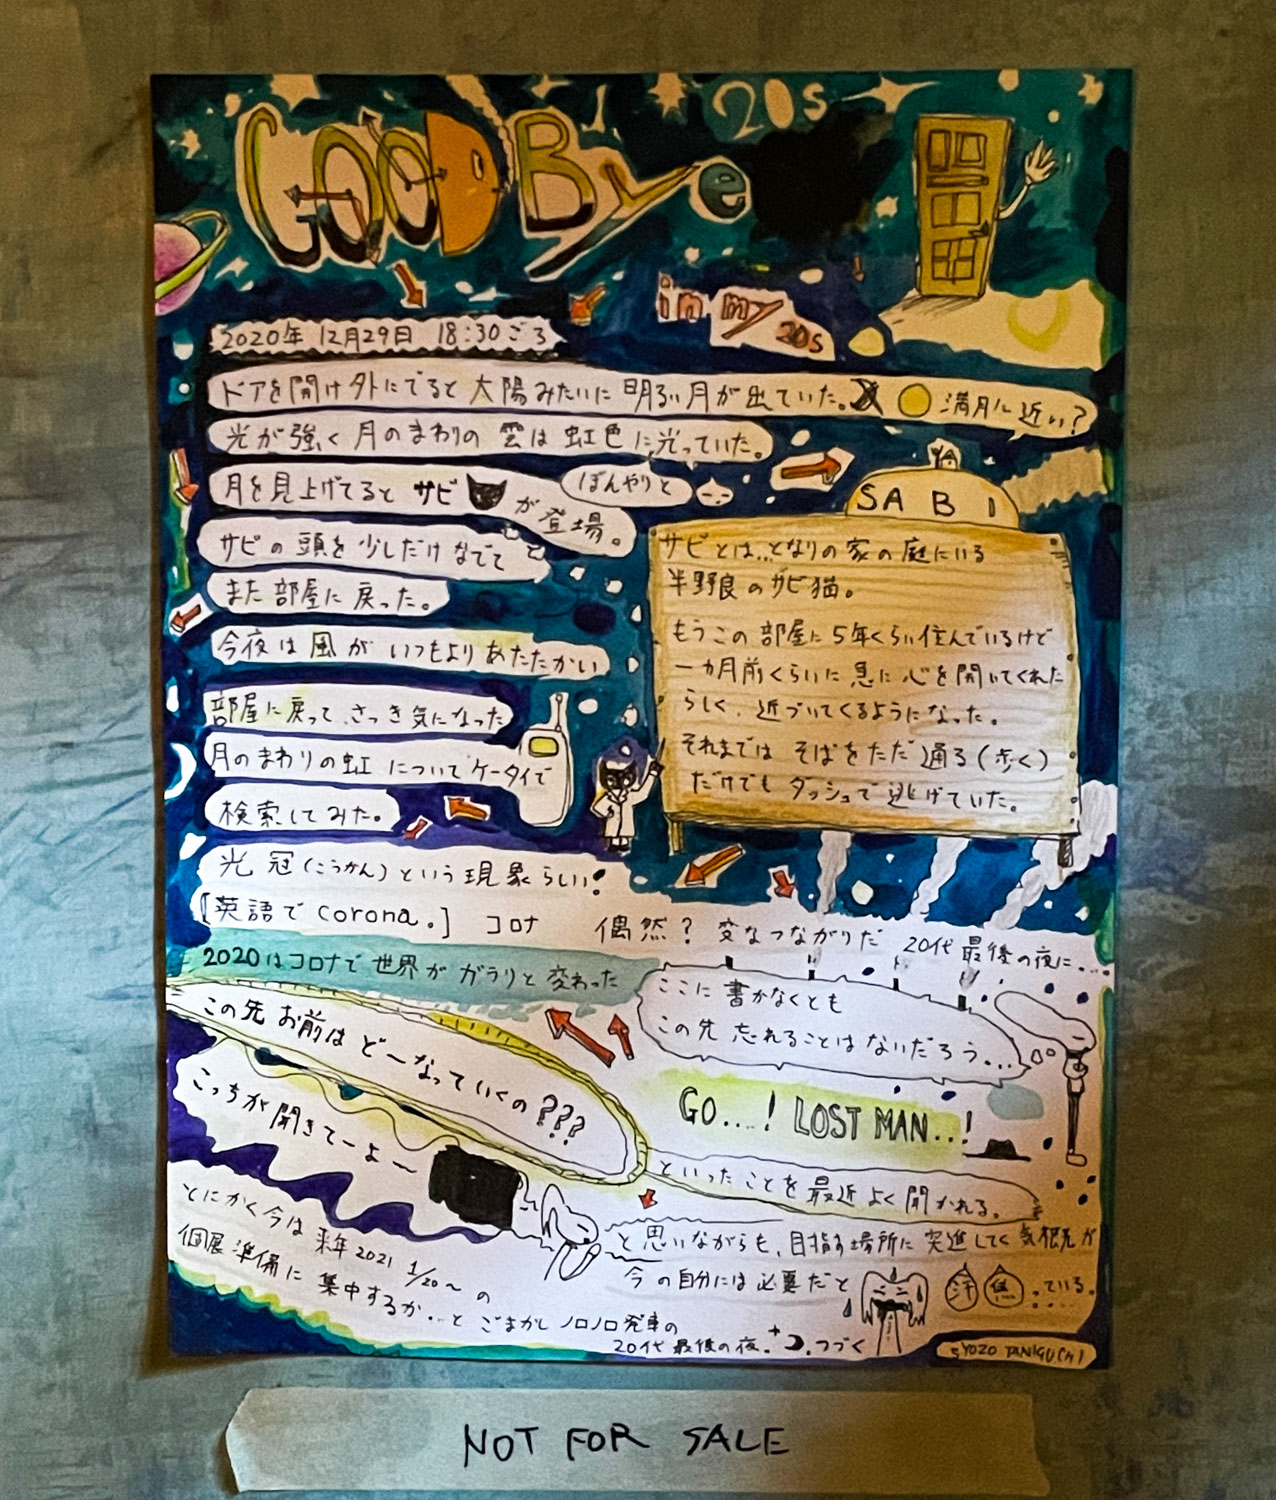 GOOD Bye
20s
in my 20s
2020年 12月29日 18:30ごろ
ドアを開け外にでると太陽みたいに明るい月が出ていた。
満月に近い?
光が強く月のまわりの雲は虹色に光っていた。
月を見上げてると サビ が登場。
ぼんやりと
サビの頭を少しだけなでて
また部屋に戻った。
今夜は風がいつもよりあたたかい
部屋に戻って、さっき気になった
月のまわりの虹についてケータイで
検索してみた。
SABI
サビとは…となりの家の庭にいる
半野良のサビ猫。
もうこの部屋に5年くらい住んでいるけど
一ヵ月前くらいに急に心を開いてくれた
らしく、近づいてくるようになった。
それまではそばをただ通る(歩く)
だけでもダッシュで逃げていた。
光冠(こうかん)という現象らしい!
[英語でcorona。] コロナ 偶然? 変なつながりだ 20代最後の夜に...
2020はコロナで世界がガラリと変わった
ここに書かなくとも
この先忘れることはないだろう...
この先お前はどーなっていくの???
こっちが聞きてーよ〜
GO....! LOST MAN...!
といったことを最近よく聞かれる。
と思いながらも、目指す場所に突進してく気根だが
今の自分には必要だと
汗 ..っている.
とにかく今は来年2021 1/20〜の
個展準備に集中するか...と ごまかしノロノロ発車の
20代最後の夜。 つづく
SYOZO TANIGUCHI
NOT FOR SALE